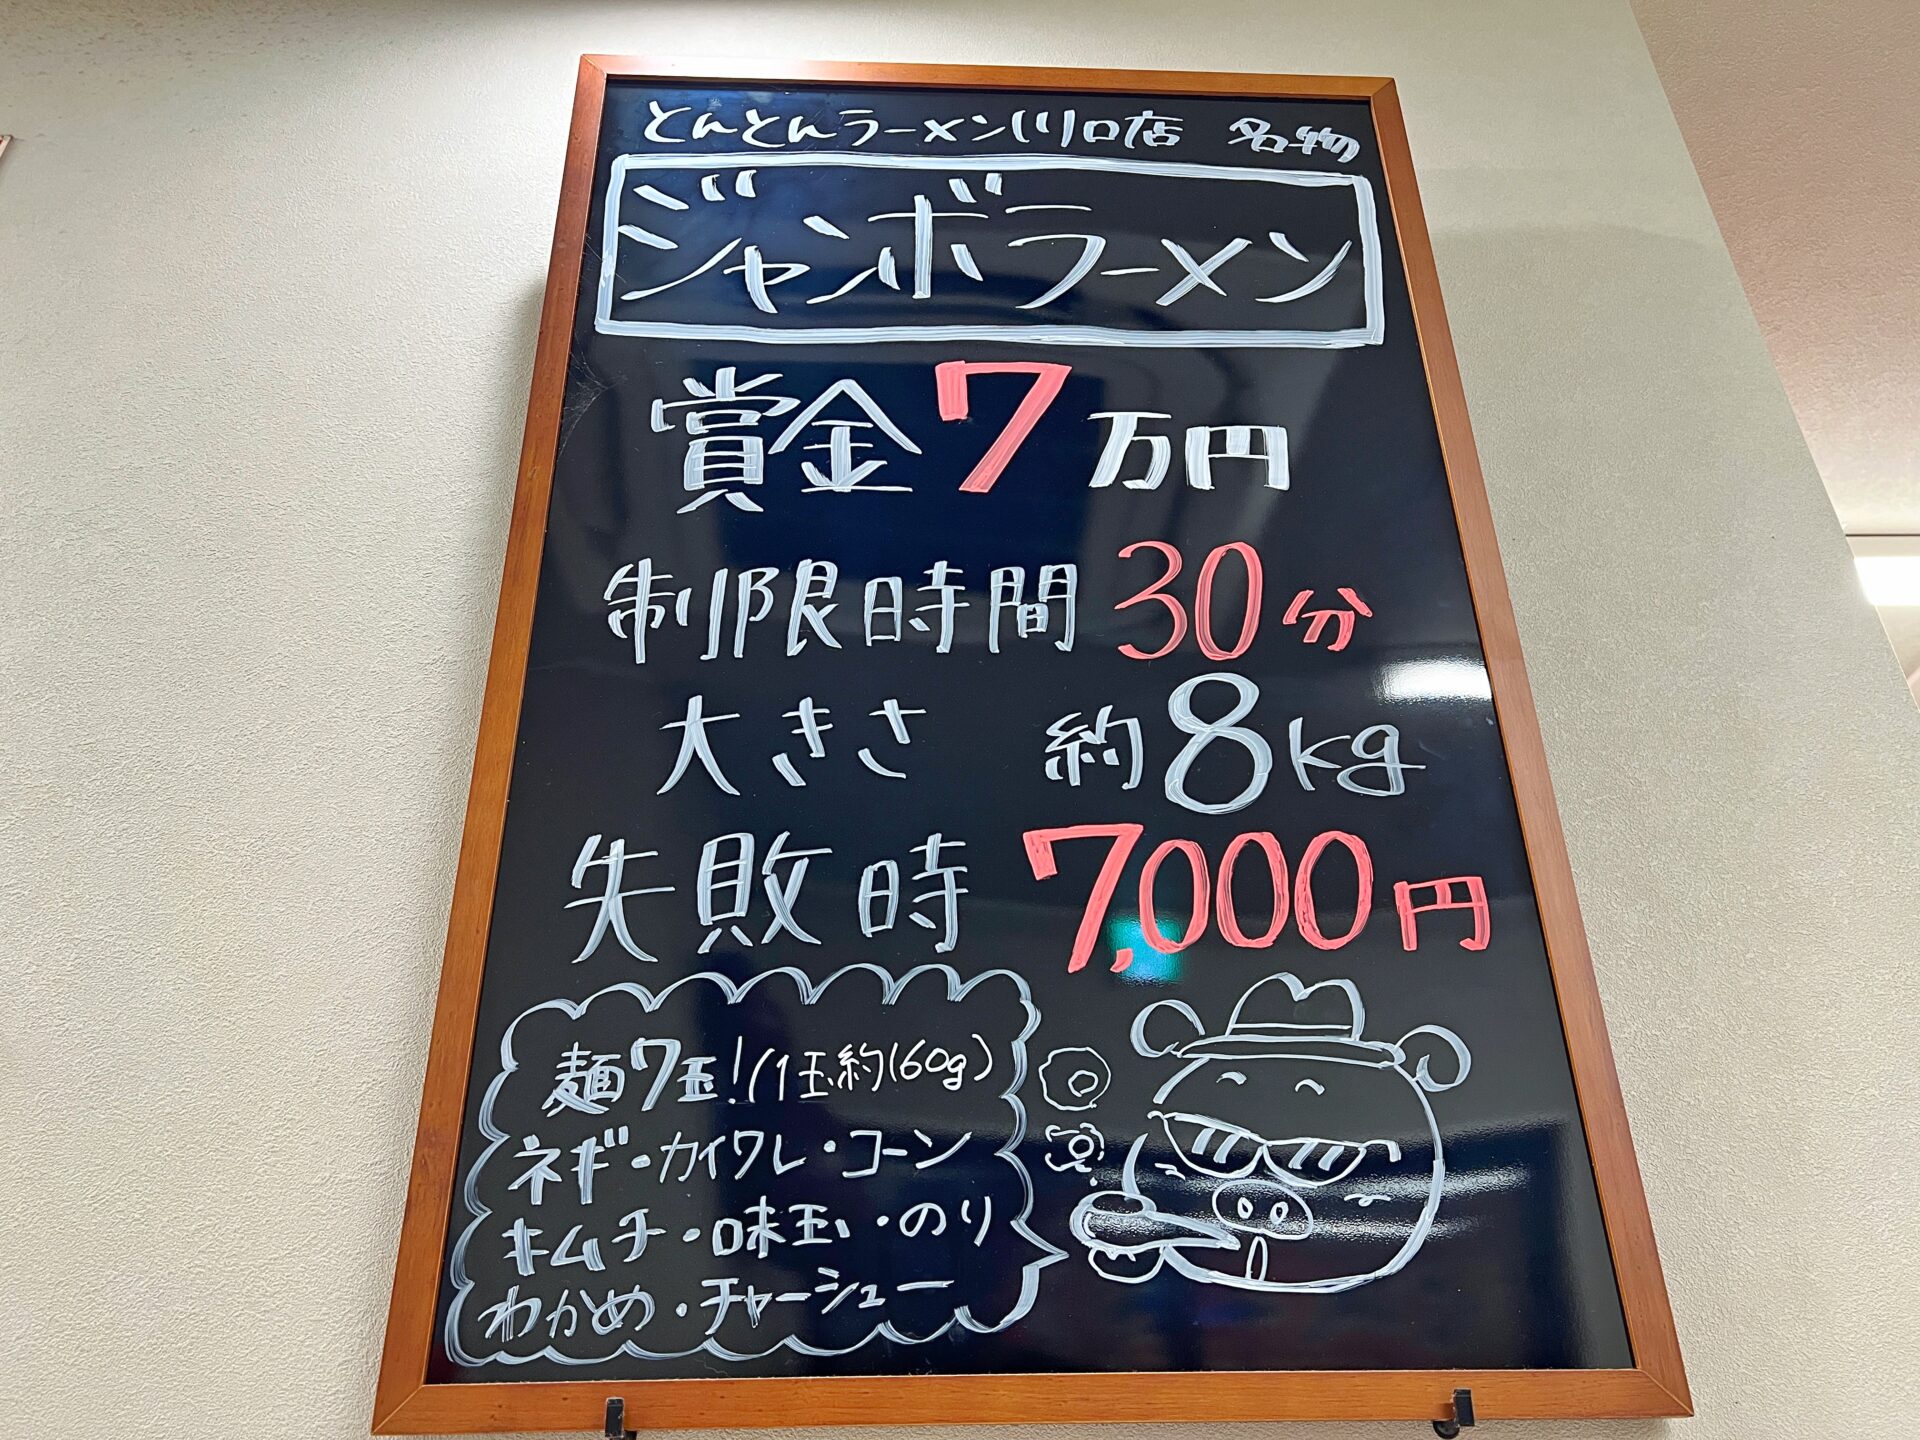 とんとんラーメン川口店 名物
ジャンボラーメン
賞金7万円
制限時間 30分
大きさ 約8kg
失敗時 7,000円
麺7玉!(1玉約160g)
ネギ・カイワレ・コーン
キムチ・味玉・のり
わかめ・チャーシュー